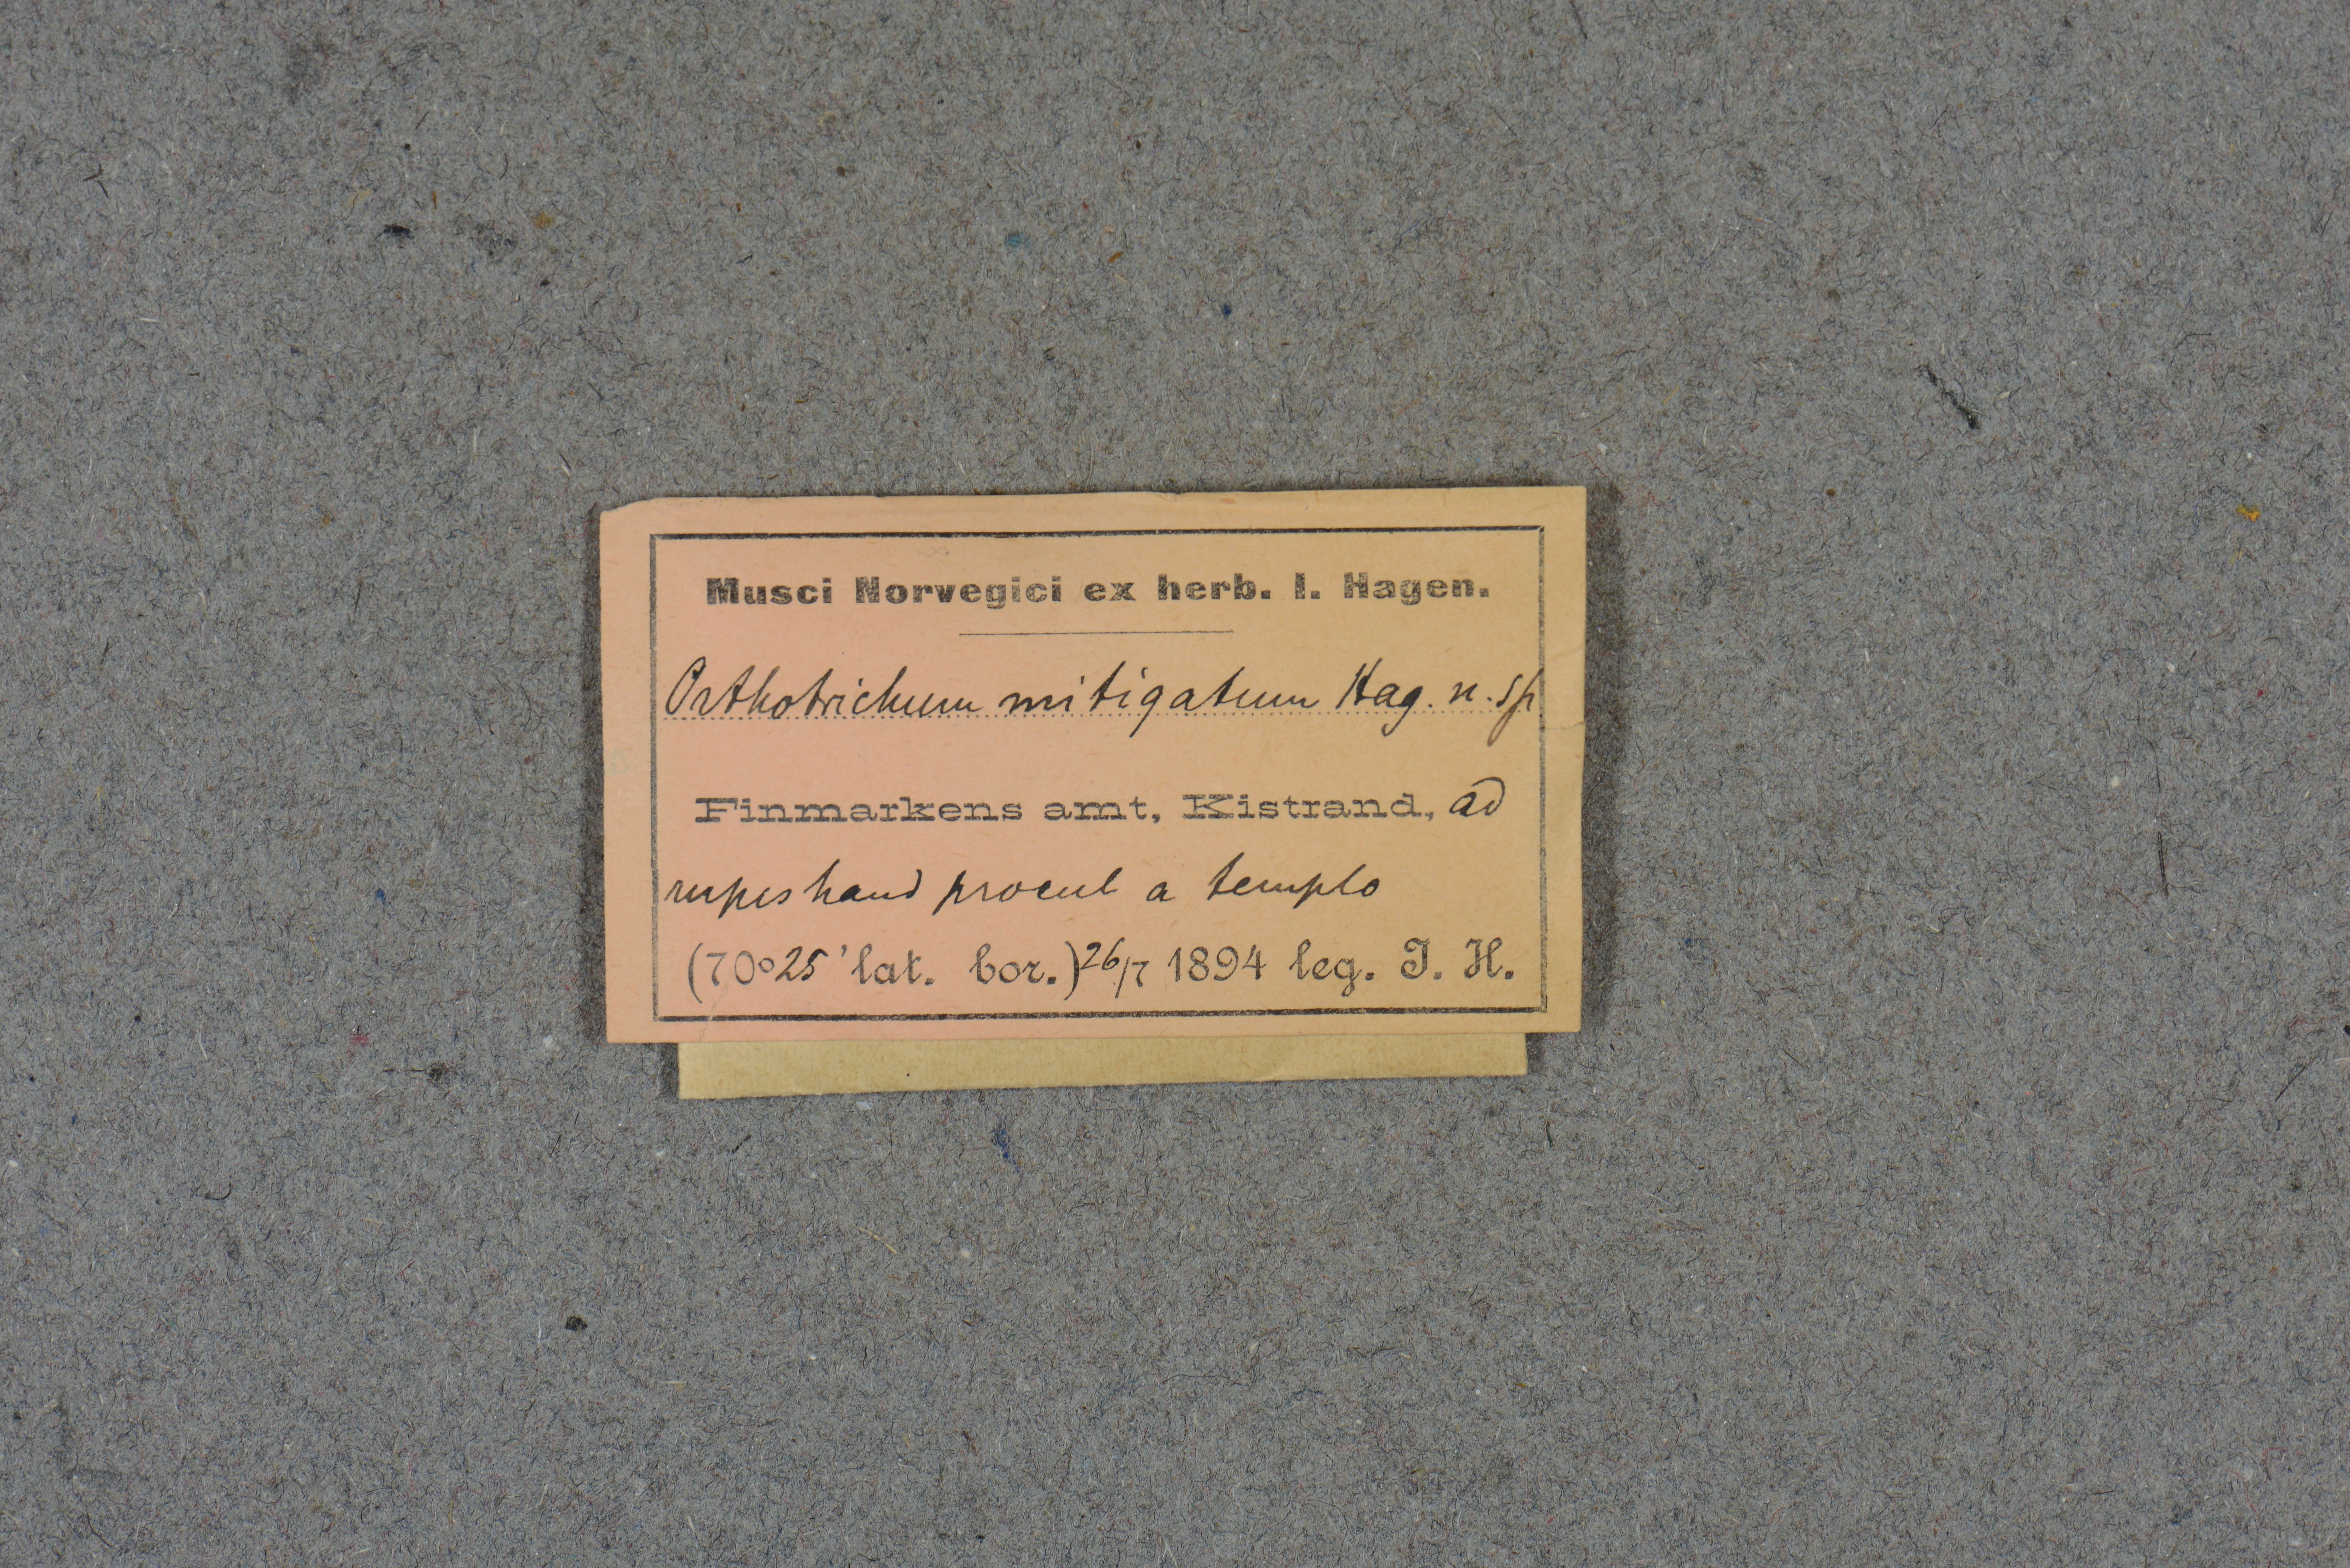 Musci Norvegici ex herb. I. Hagen.
Orthotrichum mitigatum Hag. n. sp
Finmarkens amt, Kistrand, ad
rupes haud procul a templo
(70°25' lat. bor.) 26/7 1894 leg. I. H.